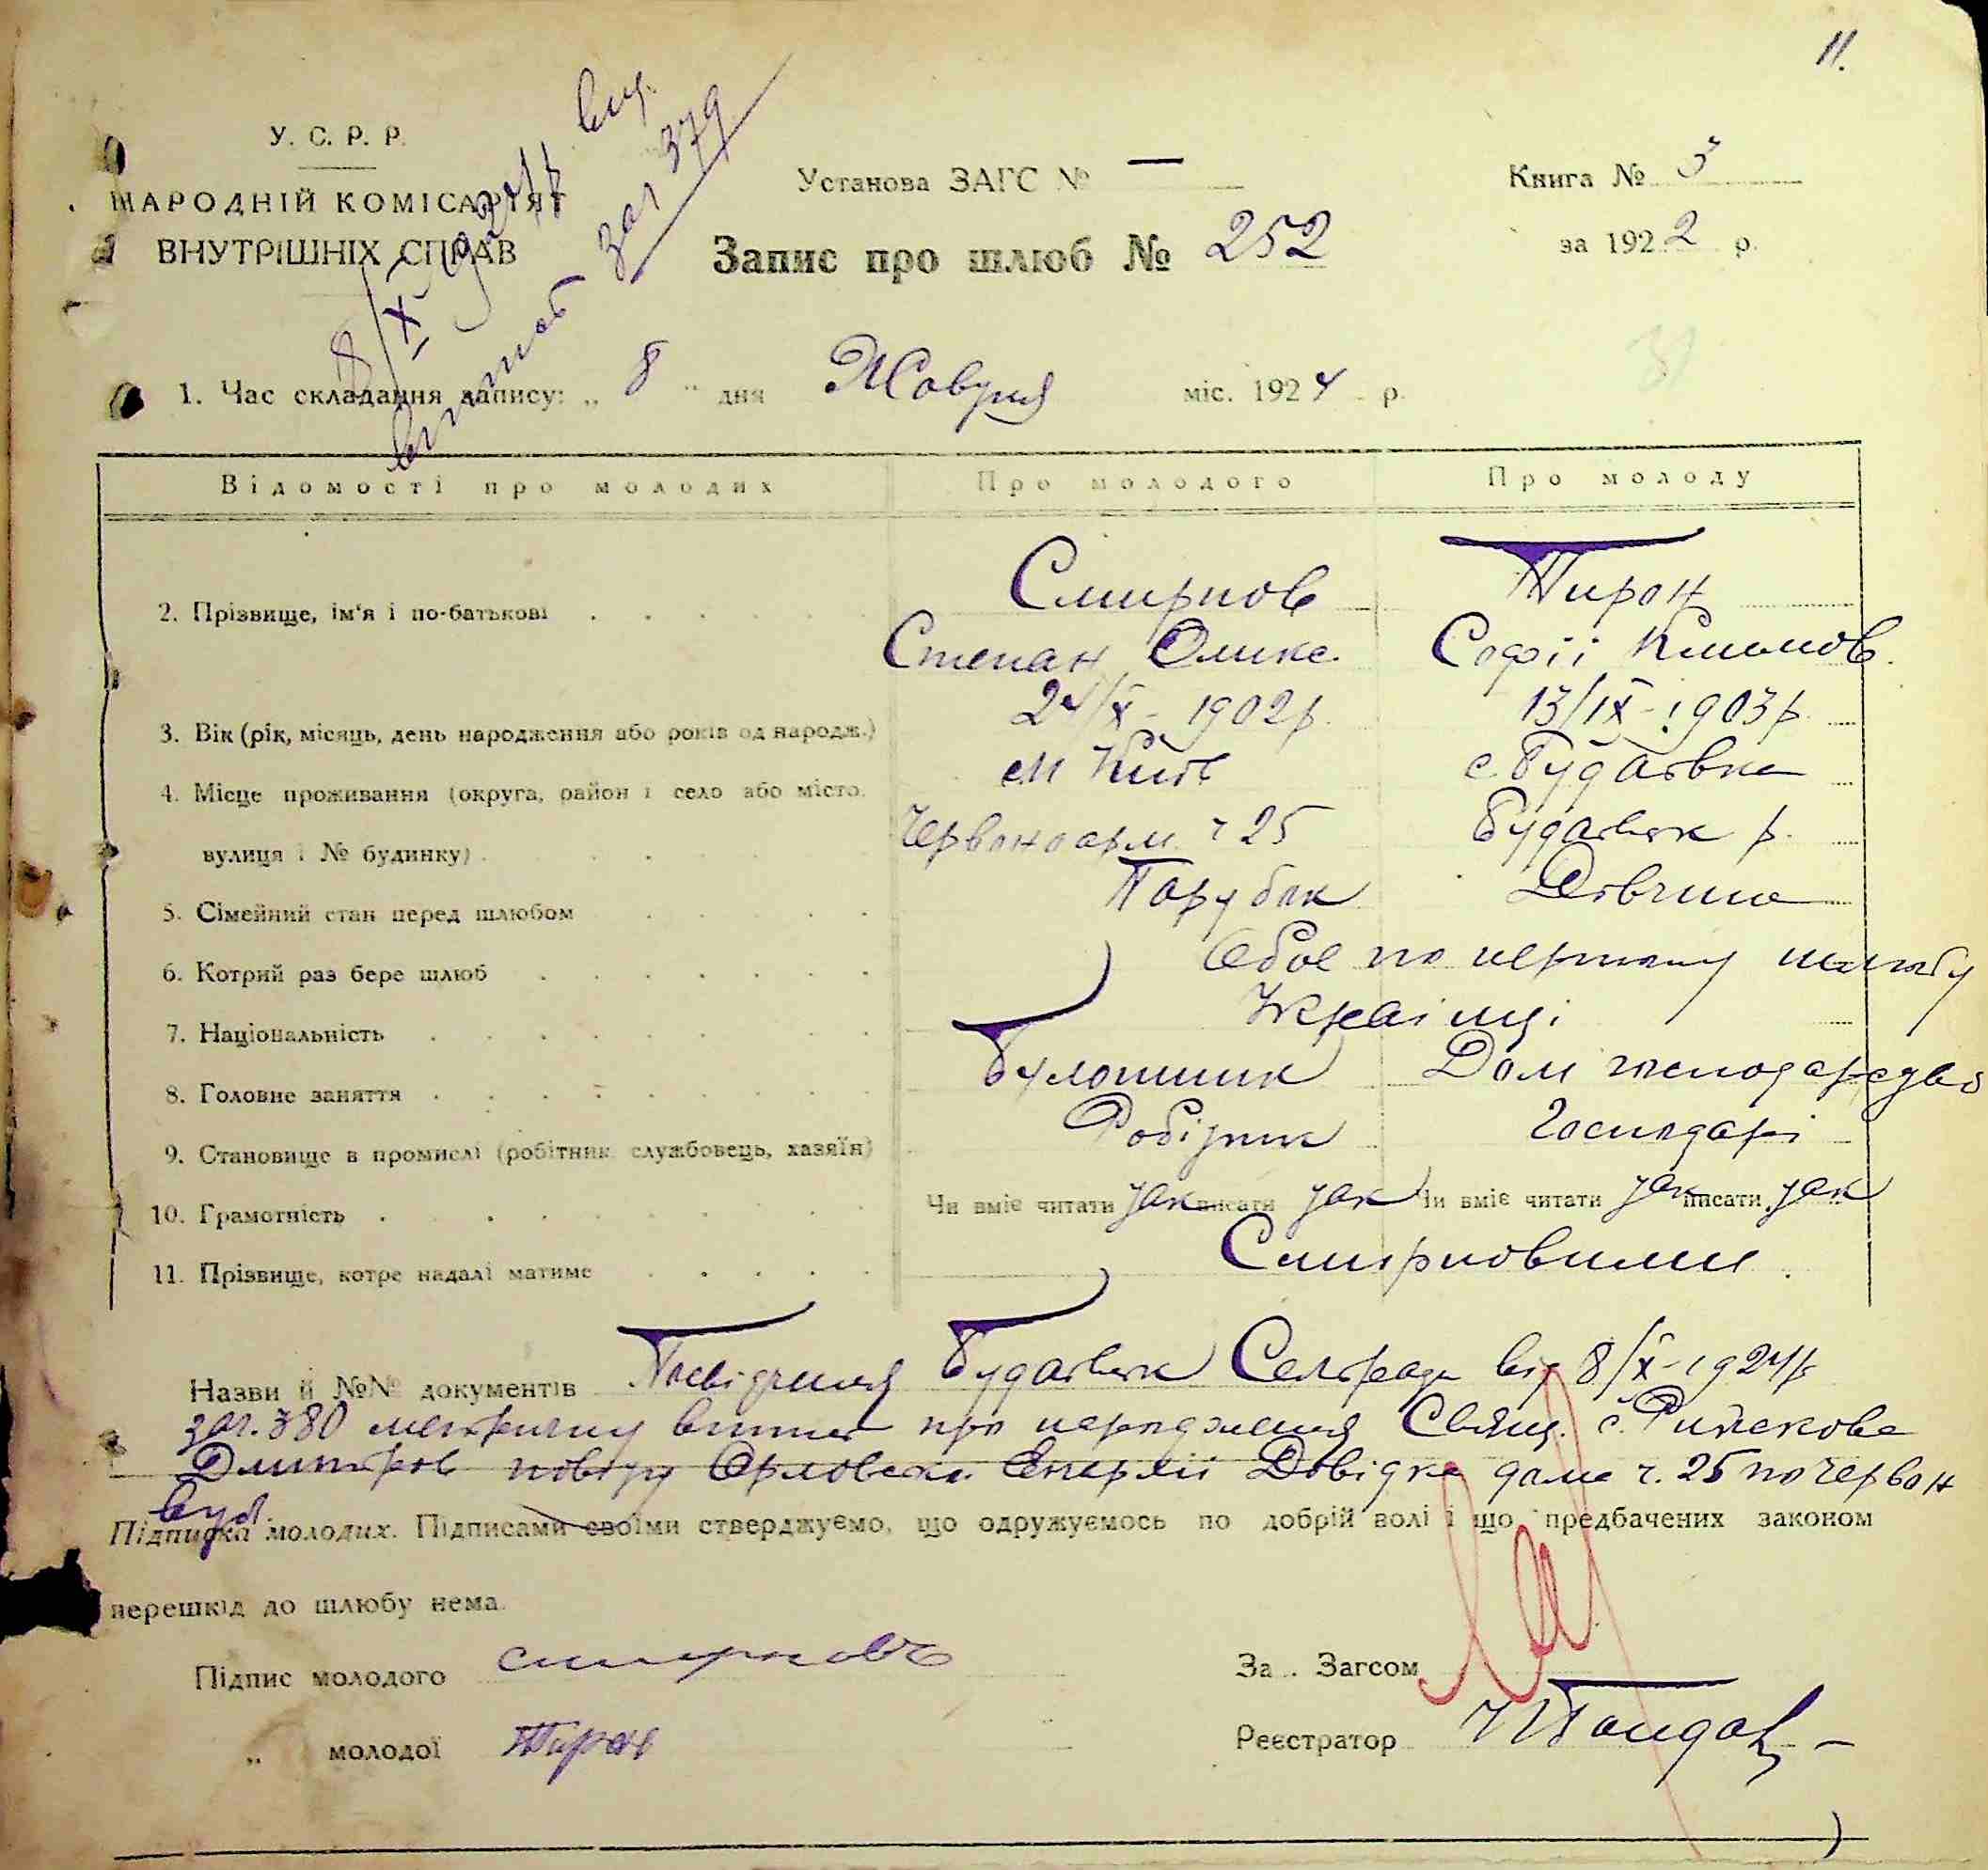 11.
У. С. Р. Р.
НАРОДНІЙ КОМІСАРІЯТ
ВНУТРІШНІХ СПРАВ
8/X 1924 р.
витяг
за № 379
Установа ЗАГС № —
Запис про шлюб № 252
Книга № 5
за 1922 р.
1. Час складання запису: „ 8 " дня Жовтня міс. 1924 р.
Відомості про молодих Про молодого Про молоду
2. Прізвище, ім'я і по-батькові Смирнов Тирон
Степан Олике. Софії Климов.
3. Вік (рік, місяць, день народження або років од народж.) 24/X - 1902 р. 13/IX - 1903 р.
4. Місце проживання (округа, район і село або місто, м Київ с. Будаївка
вулиця і № будинку) Червоноарм. ч 25 Будаївськ р.
5. Сімейний стан перед шлюбом Парубок Дівчина
6. Котрий раз бере шлюб Обоє по першому шлюбу
7. Національність Українці
8. Головне заняття Булошник Дом господарство
9. Становище в промислі (робітник службовець, хазяїн) Робітник Господарі
10. Грамотність Чи вміє читати так писати так Чи вміє читати так писати так
11. Прізвище, котре надалі матиме Смирновими
Назви й №№ документів Посвідчення Будаївськ Сельради від 8/X-1924 р
за ч. 380 метричну витяг про народження Свящ. с.
Дмитров повіту Орловськ. Епархії Довідка дома ч. 25 по Червон
вул.
Підписка молодих. Підписами своїми стверджуємо, що одружуємось по добрій волі і що предбачених законом
перешкід до шлюбу нема.
Підпис молодого Смирновъ
За.. Загсом
„ молодої Тирон
Реєстратор